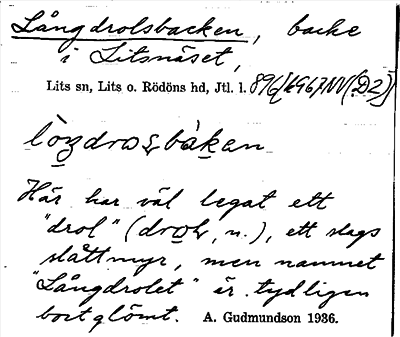 Långdrolsbacken, backe
i Litsnäset,
Lits sn, Lits o. Rödöns hd, Jtl. l.
Här har väl legat ett
"drol" ( n.), ett slags
slåttmyr, men namnet
"Långdrolet" är tydligen
bortglömt. A. Gudmundson 1936.